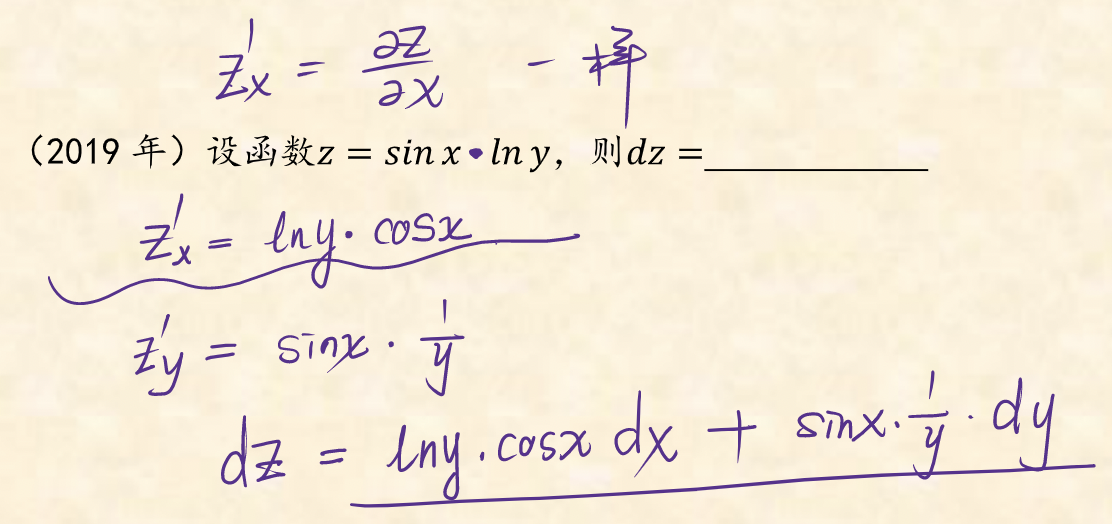 z'x = ∂z/∂x - 样
（2019 年）设函数z = sin x·ln y，则dz =____________
z'x = lny·cosx
z'y = sinx·1/y
dz = lny·cosx dx + sinx·1/y·dy